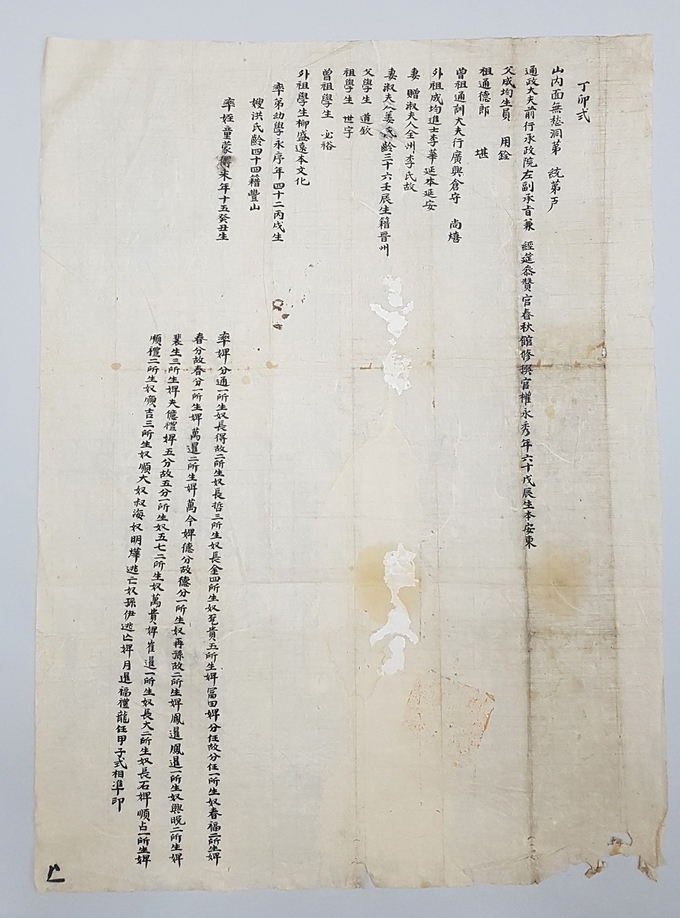 丁卯式
山內面無愁洞第 統第戶
通政大夫前行承政院左副承旨兼 經筵參贊官春秋館修撰官權永秀年六十戊辰生本安東
父成均生員 用銓
祖通德郎 堪
曾祖通訓大夫行廣興倉守 尚熺
外祖成均進士李華延本延安
妻 贈淑夫人全州李氏故
妻淑夫人姜氏齡三十六壬辰生籍晉州
父學生 道欽
祖學生 世字
曾祖學生 必裕
外祖學生柳盛遠本文化
率弟幼學永序年四十二丙戌生
嫂洪氏齡四十四籍豐山
率姪童蒙 來年十五癸丑生
率婢分通一所生奴長得故二所生奴長哲三所生奴長金四所生奴 貴五所生婢富田婢分任故分任一所生奴春福二所生婢
春分故春分一所生婢萬暹二所生婢萬今婢德分故德分一所生奴再孫故二所生婢鳳暹鳳暹一所生奴興晩二所生婢
裴生三所生婢夫億禮婢五分故五分一所生奴五七二所生奴萬貴婢崔暹一所生奴長大二所生奴長石婢順占一所生婢
順禮二所生奴順吉三所生奴順大奴叔海奴明燁逃亡奴孫伊逃亡婢月暹福禮龍任甲子式相準印